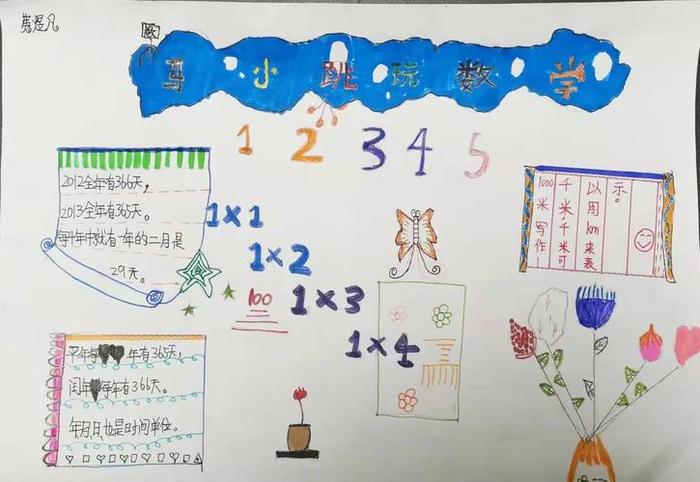 马小跳玩数学
1 2 3 4 5
2012全年有366天,
2013全年有365天。
每4年中就有一年的二月是
29天。
1×1
1×2
1×3
1×4
100
1000米写作1
千米,千米可
以用km来表
示。
平年每年有365天,
闰年每年有366天。
年月日也是时间单位。